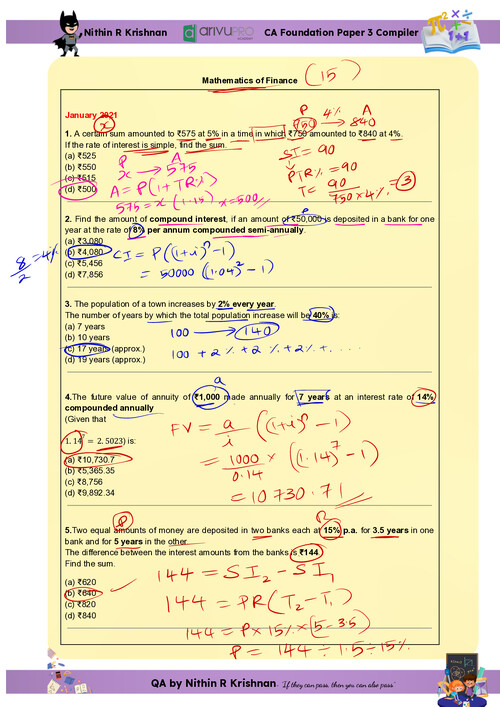 Nithin R Krishnan
ARIVUPRO
ACADEMY
CA Foundation Paper 3 Compiler
Mathematics of Finance (15)
January 2021
P 4% A
750 → 840
1. A certain sum amounted to ₹575 at 5% in a time in which ₹750 amounted to ₹840 at 4%.
x
If the rate of interest is simple, find the sum.
SI = 90
(a) ₹525
P A
x → 575
PTR% = 90
(b) ₹550
(c) ₹515
A = P(1+TR%)
T = 90/750×4% = 3
(d) ₹500
575 = x(1.15) x = 500
2. Find the amount of compound interest, if an amount of ₹50,000 is deposited in a bank for one
P
year at the rate of 8% per annum compounded semi-annually.
(a) ₹3,080
8/2 = 4%
(b) ₹4,080
CI = P((1+i)ⁿ - 1)
(c) ₹5,456
= 50000((1.04)² - 1)
(d) ₹7,856
3. The population of a town increases by 2% every year.
The number of years by which the total population increase will be 40% is:
(a) 7 years
100 → 140
(b) 10 years
(c) 17 years (approx.)
100 + 2% + 2% + 2% + . . . .
(d) 19 years (approx.)
a
4.The future value of annuity of ₹1,000 made annually for 7 years at an interest rate of 14%
compounded annually
(Given that
FV = a/i ((1+i)ⁿ - 1)
1.14⁷ = 2.5023) is:
(a) ₹10,730.7
= 1000/0.14 × ((1.14)⁷ - 1)
(b) ₹5,365.35
(c) ₹8,756
= 10730.71
(d) ₹9,892.34
P R
5.Two equal amounts of money are deposited in two banks each at 15% p.a. for 3.5 years in one
bank and for 5 years in the other.
The difference between the interest amounts from the banks is ₹144
Find the sum.
144 = SI₂ - SI₁
(a) ₹620
(b) ₹640
144 = PR(T₂ - T₁)
(c) ₹820
144 = P × 15% × (5 - 3.5)
(d) ₹840
P = 144 ÷ 1.5 ÷ 15%
QA by Nithin R Krishnan. "If they can pass, then you can also pass"